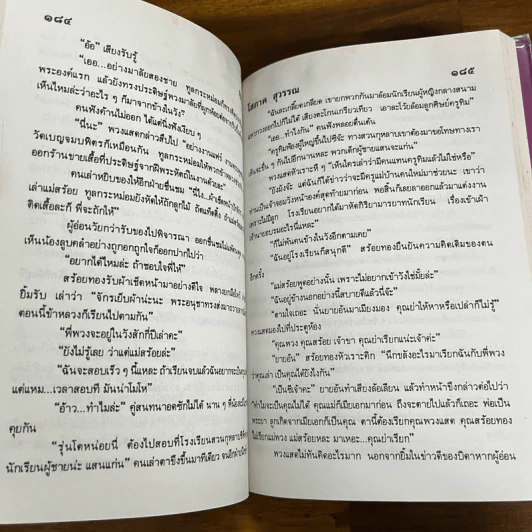 ๑๘๔
“อ้อ” เสียงรับรู้
“เออ...อย่างมาลัยสองชาย ทูลกระหม่อม
พระองค์แรก แล้วยังทรงประดิษฐ์พวงมาลัยที่ผูกข้อ
เห็นไหมล่ะว่าอะไร ๆ ก็มาจากข้างในวัง”
คนฟังค้านไม่ออก ได้แต่นิ่งฟังเงียบ ๆ
“นี่นะ” พวงแสดกล่าวสืบไป “อย่างงานแฟร์
วัดเบญจมบพิตรก็เหมือนกัน ทูลกระหม่อมให้
ออกร้านขายเสื้อที่ประดิษฐ์จากฝีพระหัตถ์ในงานด้วยละ”
คนเล่าหยิบของให้อีกฝ่ายชื่นชม “นี่ไง
เล่าแม่สร้อย ทูลกระหม่อมยังหัดให้ถักลูกไม้ ถัดแท็ตติ้ง
ติดเสื้อละก็ พี่จะถักให้”
ผู้อ่อนวัยกว่ารับของไปพิจารณา ออกชื่นชม
เห็นน้องลูบคลำอย่างถูกอกถูกใจก็ออกปากไปว่า
“อยากได้ไหมล่ะ ถ้าชอบใจพี่ให้”
สร้อยทองรับผ้าเช็ดหน้ามาอย่างดีใจ
ยิ้มรับ เล่าว่า “จักรเย็บผ้าน่ะนะ พระอนุชาทรงส่งมาถวาย
ตอนนี้ข้าหลวงก็เรียนไปตามกัน”
“พี่พวงจะอยู่ในวังสักกี่ปีเล่าคะ”
“ยังไม่รู้เลย ว่าแต่แม่สร้อยล่ะ”
“ฉันจะสอบเร็ว ๆ นี้แหละ ถ้าเรียนจบแล้วฉันอยากจะเป็น
แต่แหม...เวลาสอบที มันน่าไม่ไห”
“อ้าว...ทำไมล่ะ” คู่สนทนาอดซักไม่ได้ นาน ๆ ที
คุยกัน
“รุ่นโตหน่อยนี่ ต้องไปสอบที่โรงเรียนสวนกุหลาบ
นักเรียนผู้ชายน่ะ แสนแก่น” คนเล่าตาขึงขึ้นมาทีเดียว
โสภาค สุวรรณ
๑๘๕
“ฉันละเกลี๊ยดเกลียด เขายกพวกกันมาล้อมนักเรียนผู้หญิงกลางสนาม
ออกไปก็ไม่ได้ เสียงตะโกนเกรียวเทียว เอาละโว้ยล้อมลูกศิษย์ครูทิม”
“เออ...ทำไงกัน” คนฟังพลอยตื่นเต้น
“ครูทิมฟ้องผู้ใหญ่ขึ้นไปซีจ๊ะ ทางสวนกุหลาบเขาต้องมาขอโทษทางเรา
ขึ้น ๆ กันไปอีกนานหละ พวกเด็กผู้ชายแสนจะแก่น”
พวงแสดหัวเราะคิ ๆ “เห็นใครเล่าว่ามีคนแทนครูทิมแล้วไม่ใช่หรือ”
“ยังมังจ๊ะ แต่ฉันก็ได้ข่าวว่าจะมีครูแม่บ้านคนใหม่มาช่วยนะ เขาว่า
ท่านเป็นเจ้าจอมวังหน้าองค์สุดท้ายมาก่อน พอสิ้นก็เลยลาออกแล้วมาแต่งงาน
เพราะไม่มีลูก โรงเรียนอยากได้มาหัดกิริยามารยาทนักเรียน เรื่องเข้าเฝ้า
เจ้านายอบรมอะไรนี่แหละ”
“ก็ไม่พ้นคนข้างในวังอีกตามเคย”
“ฉันอยู่โรงเรียนก็สนุกดี” สร้อยทองยืนยันความคิดเดิมของตน
อีกครั้ง
“แม่สร้อยพูดอย่างนั้น เพราะไม่อยากเข้าวังใช่มั้ยล่ะ”
“ฉันอยู่ข้างนอกอย่างนี้สบายดีแล้วนี่จ๊ะ”
“ตามใจเถอะ นั่นยายอันมาเมียงมอง คุณย่าให้หาหรือเปล่าก็ไม่รู้”
พวงแสดมองไปที่ประตูห้อง
“คุณพวง คุณสร้อย เจ้าขา คุณย่าเรียกแน่ะเจ้าค่ะ”
“ยายอัน” สร้อยทองหัวเราะคิก “นึกขลังอะไรมาเรียกฉันกับพี่พวง
ว่าคุณเล่า เป็นคุณได้ยังไงกัน”
“เป็นซีเจ้าคะ” ยายอันทำเสียงล้อเลียน แล้วทำหน้าขึงกล่าวต่อไปว่า
“ทำไมจะเป็นคุณไม่ได้ คุณแม่ก็มีเยเอกมาก่อน ถึงจะตายไปแล้วก็เถอะ พ่อเป็น
พระยา ลูกเกิดจากเมียเอกก็เป็นคุณ ตานี้ต้องเรียกคุณพวงแสด คุณสร้อยทอง
ไม่เรียกแม่พวง แม่สร้อยหละ มาเหอะ...คุณย่าเรียก”
พวงแสดไม่ทันคิดอะไรมาก นอกจากยิ้มในข่าวดีของบิดาหากผู้อ่อน